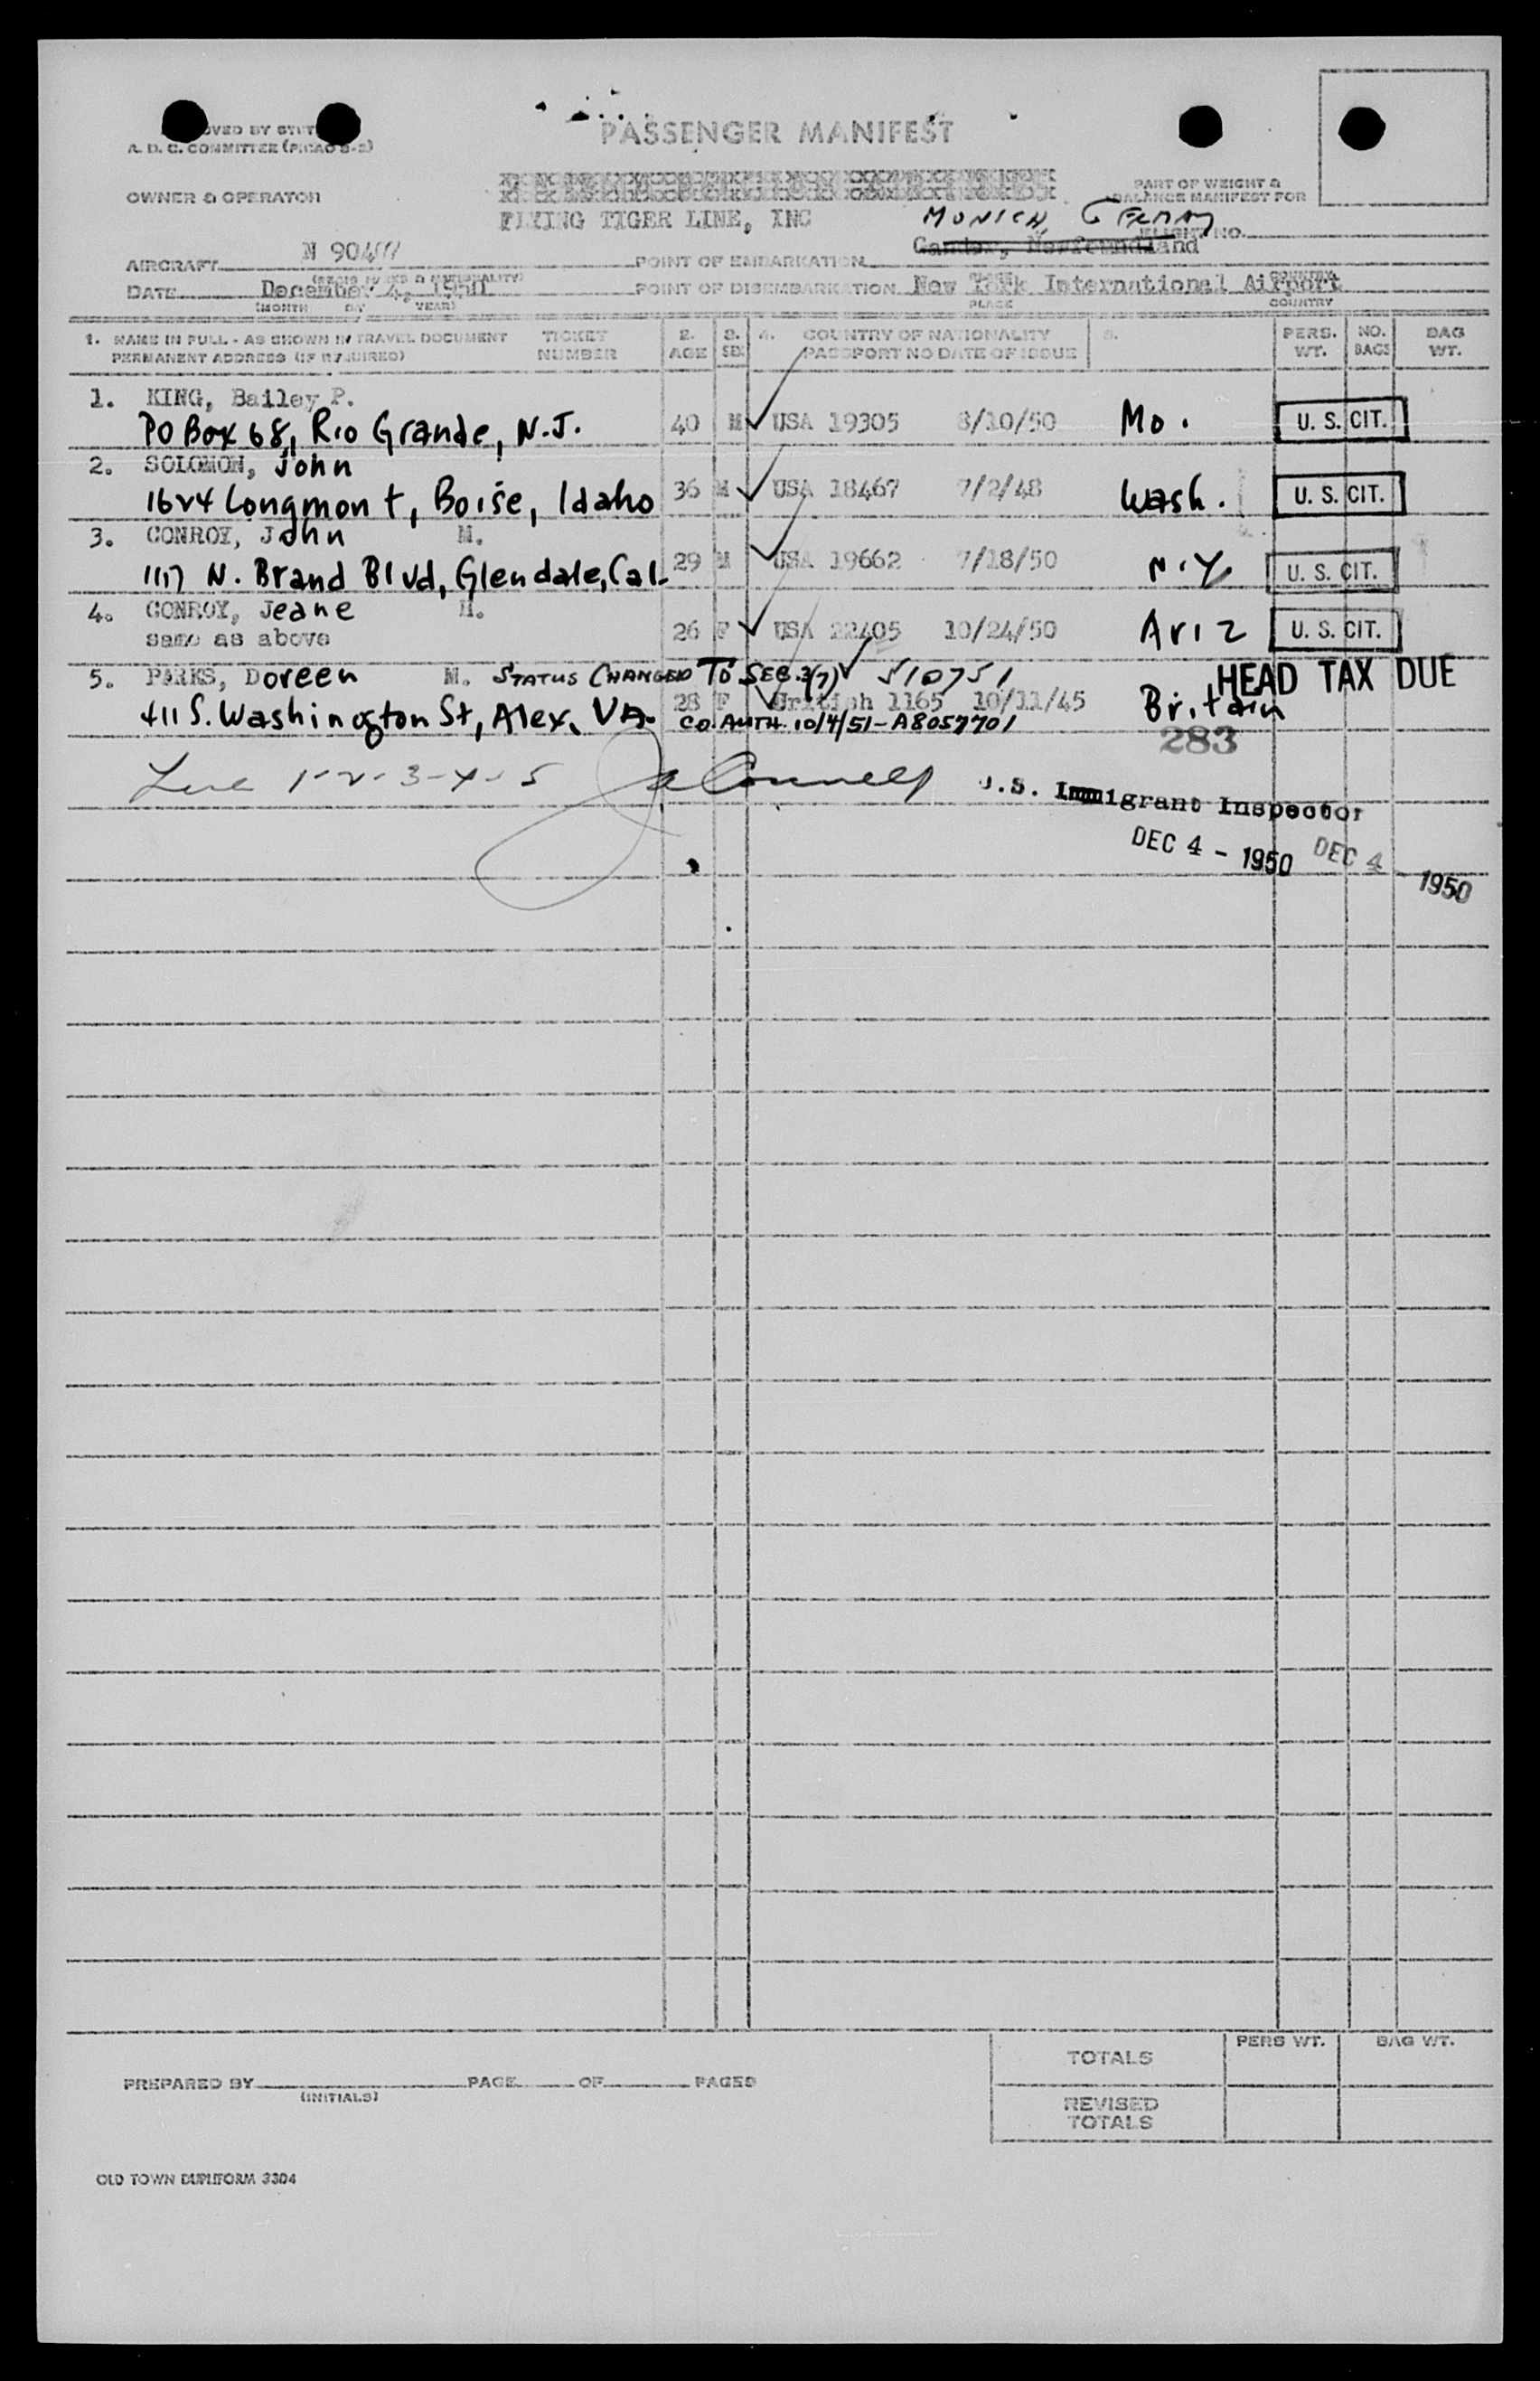 PASSENGER MANIFEST
A. D. C. COMMITTEE
OWNER & OPERATOR
FLYING TIGER LINE, INC
PART OF WEIGHT &
BALANCE MANIFEST FOR
FLIGHT NO.
MUNICH,
Gander, Newfoundland
AIRCRAFT N
POINT OF EMBARKATION
DATE December 4, 1950
POINT OF DISEMBARKATION New York International Airport
(MONTH DAY YEAR)
PLACE COUNTRY
1. NAME IN FULL - AS SHOWN IN TRAVEL DOCUMENT TICKET 2. 3. 4. COUNTRY OF NATIONALITY 5. PERS. NO. BAG
PERMANENT ADDRESS (IF REQUIRED) NUMBER AGE SEX PASSPORT NO DATE OF ISSUE WT. BAGS WT.
1. KING, Bailey P.
PO Box 68, Rio Grande, N.J. 40 M USA 19305 8/10/50 Mo. U. S. CIT.
2. SOLOMON, John
1624 Longmont, Boise, Idaho 36 M USA 18467 7/2/48 Wash. U. S. CIT.
3. CONROY, John M.
1117 N. Brand Blvd, Glendale, Cal. 29 M USA 19662 7/18/50 N.Y. U. S. CIT.
4. CONROY, Jeane M.
same as above 26 F USA 22405 10/24/50 Ariz U. S. CIT.
5. PARKS, Doreen M. STATUS CHANGED TO SEC. 3(7) 510751 HEAD TAX DUE
28 F British 1165 10/11/45 Britain
411 S. Washington St, Alex, VA. CO. AUTH. 10/4/51-A8057701
283
1-2-3-4-5
U.S. Immigrant Inspector
DEC 4 - 1950 DEC 4 1950
TOTALS PERS WT. BAG WT.
PREPARED BY PAGE OF PAGES
(INITIALS)
REVISED
TOTALS
OLD TOWN DUPLIFORM 3304